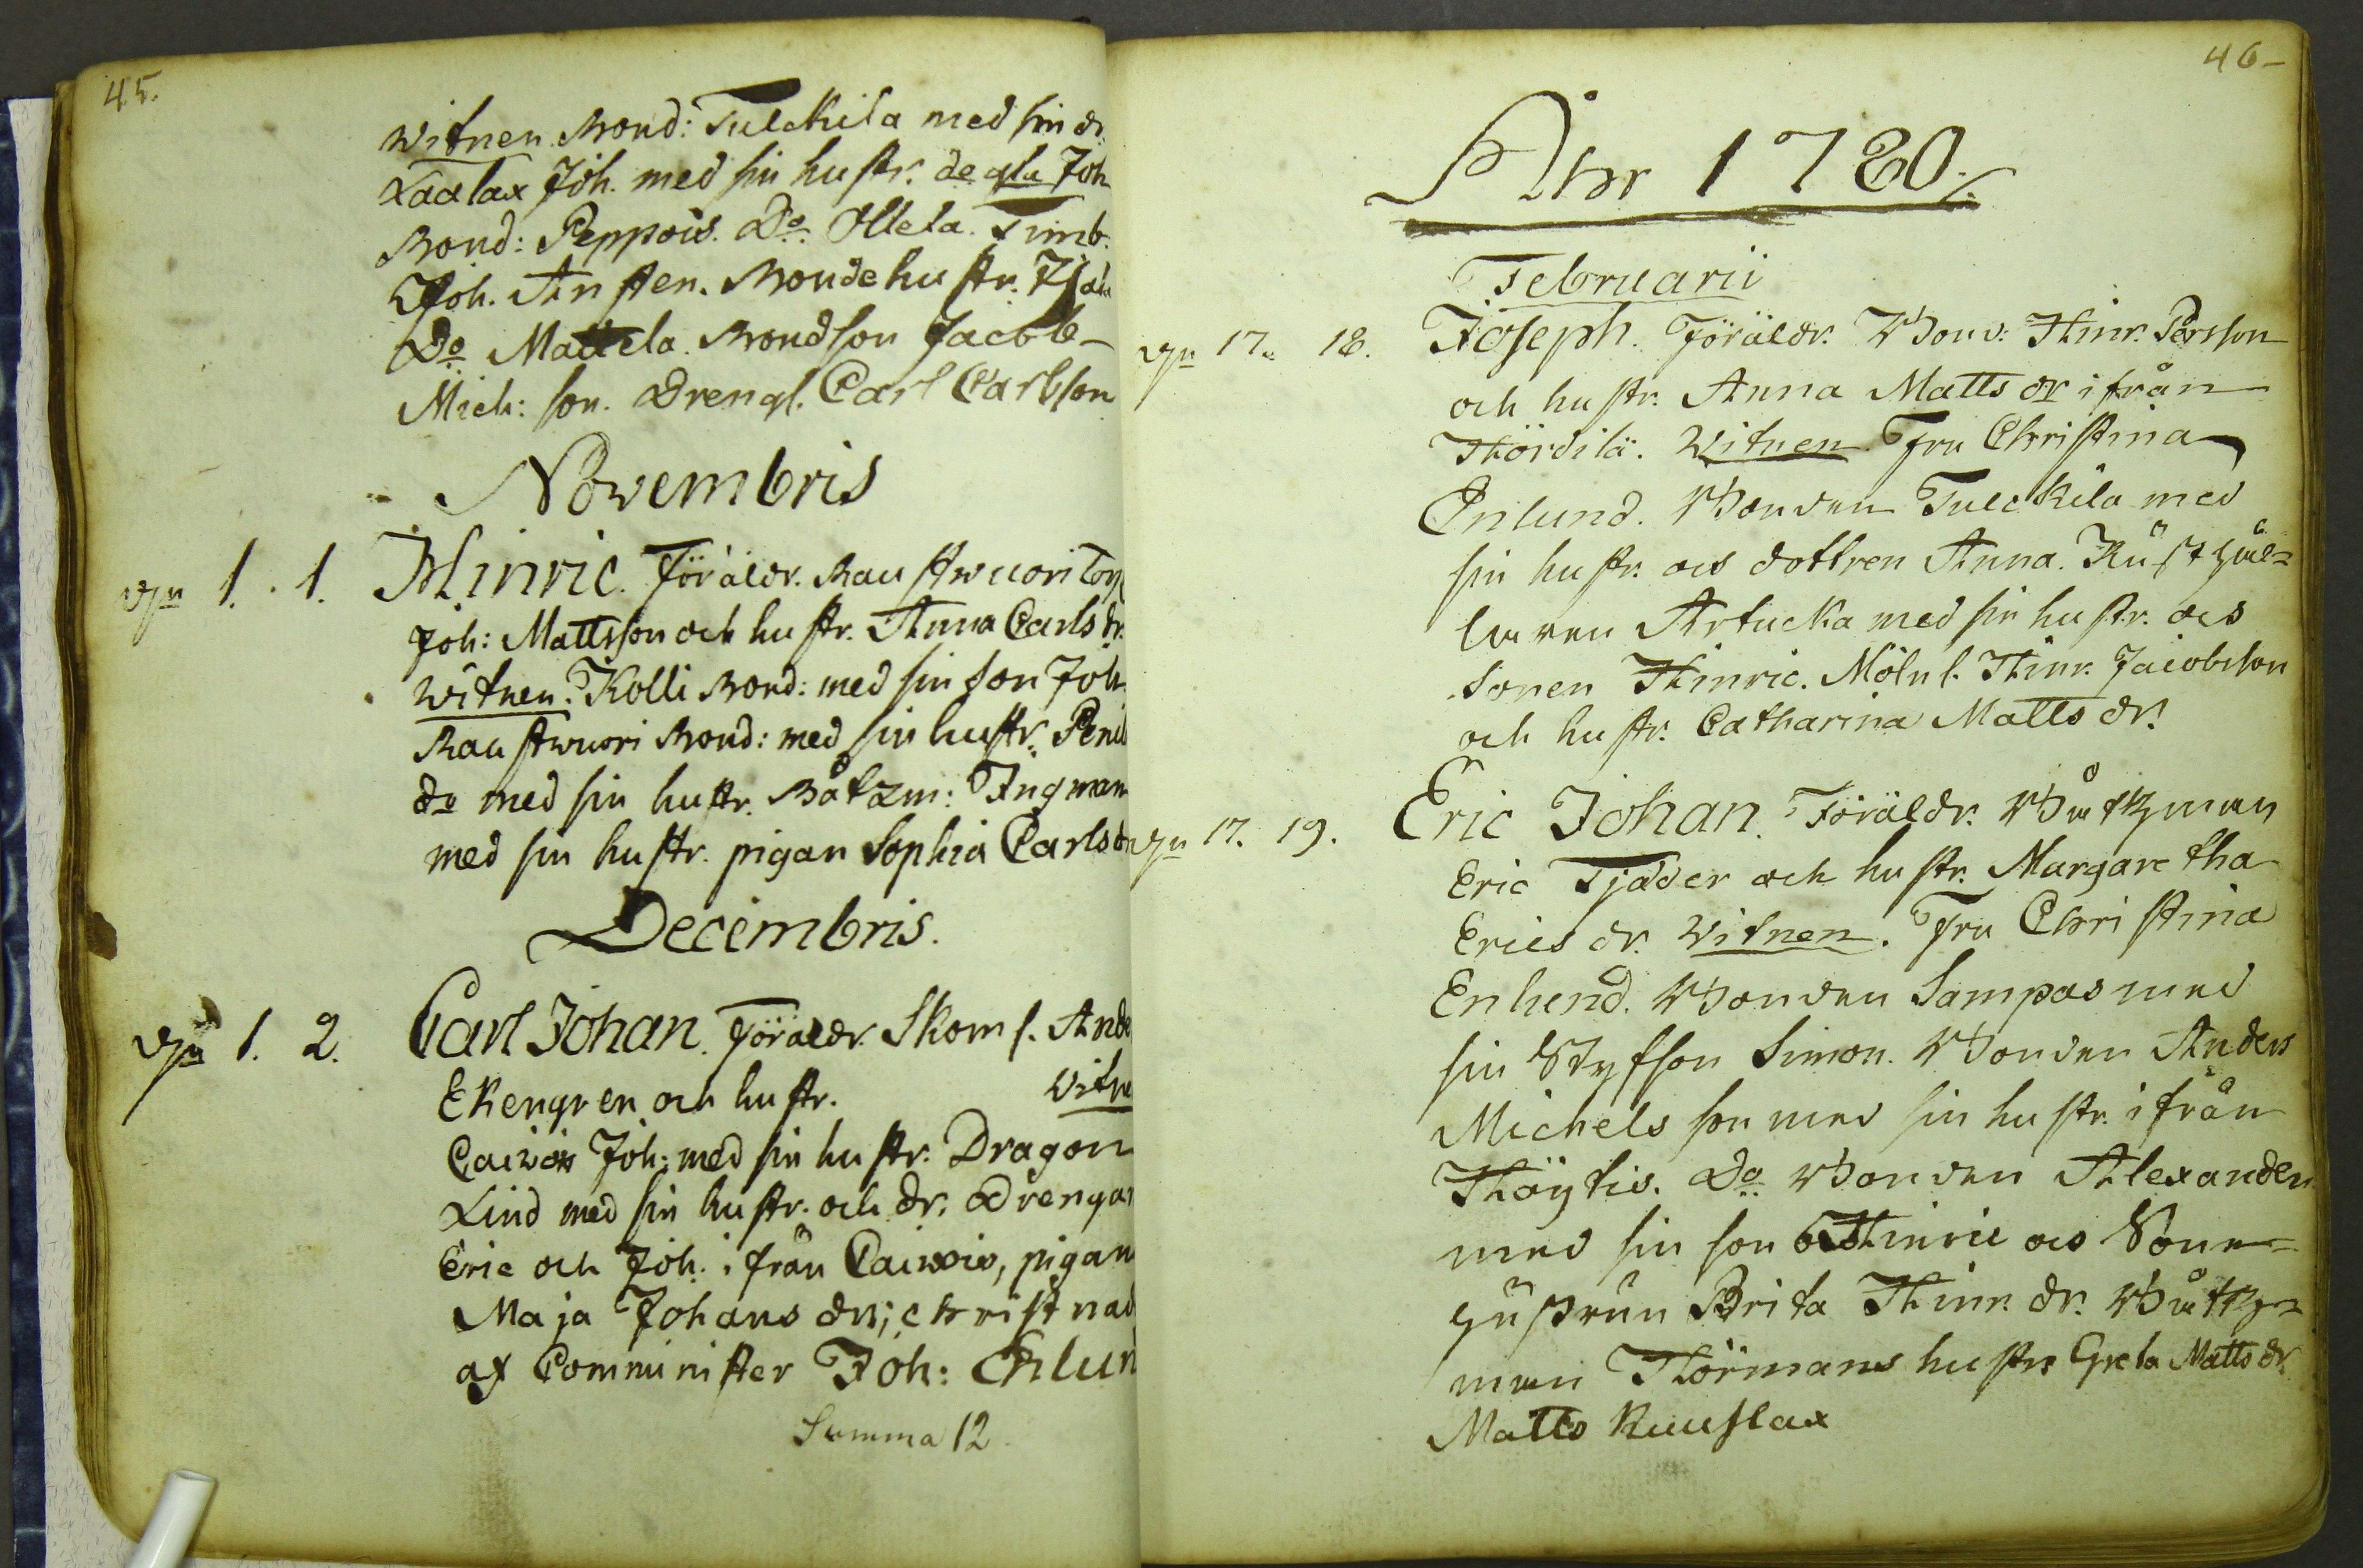 45.
Witnen Bond: Tulckila med sin dr.
Laxlax Joh. med sin hustr. de gla Joh
Bond: Peppois. Do Ollela. Timb.
Joh. Ansten. Bondehustr.
Do Mattela. Bondson Jacob
Mich: son. Drengl. Carl Carlson
Novembris
1. 1. Hinric. Föräldr. Raustwuori Torp
Joh: Mattsson och hustr. Anna Carls dr.
Witnen. Kolli Bond: med sin son Joh.
Raustwuori Bond: med sin hustr. Penil
do med sin hustr. Båtzm: Ingman
med sin hustr. pigan Sophia Carls dr
Decembris.
1. 2. Carl Johan. Föräldr. Skom s. Ande
Ekengren och hustr. Witne
Caiwois Joh: med sin hustr. Dragon
Lind med sin hustr. och dr. Drengar
Eric och Joh. ifrån Caiwois, pigan
Maja Johans dr; christnad
af Comminister Joh: Enlund
Summa 12.
46
Åhr 1780.
Februarii
17. 18. Joseph. Föräldr. Bond: Hinr. Persson
och hustr. Anna Matts dr ifrån
Hördilä. Witnen. Fru Christina
Enlund. Bonden Tulckila med
sin hustr. och dottren Anna. Rusthål=
laren Artucka med sin hustr. och
sonen Hinric. Mölnl. Hinr. Jacobsson
och hustr. Catharina Matts dr.
17. 19. Eric Johan. Föräldr. Båtzman
Eric Tjäder och hustr. Margaretha
Erics dr. Witnen. Fru Christina
Enlund. Bonden Sampas med
sin Styfson Simon. Bonden Anders
Michels son med sin hustr. ifrån
Höytis. Do Bonden Alexander
med sin son Hinric och Sone=
hustrun Brita Hinr. dr. Båtz=
man Hörmans hustr Greta Matts dr.
Matts Kuuslax